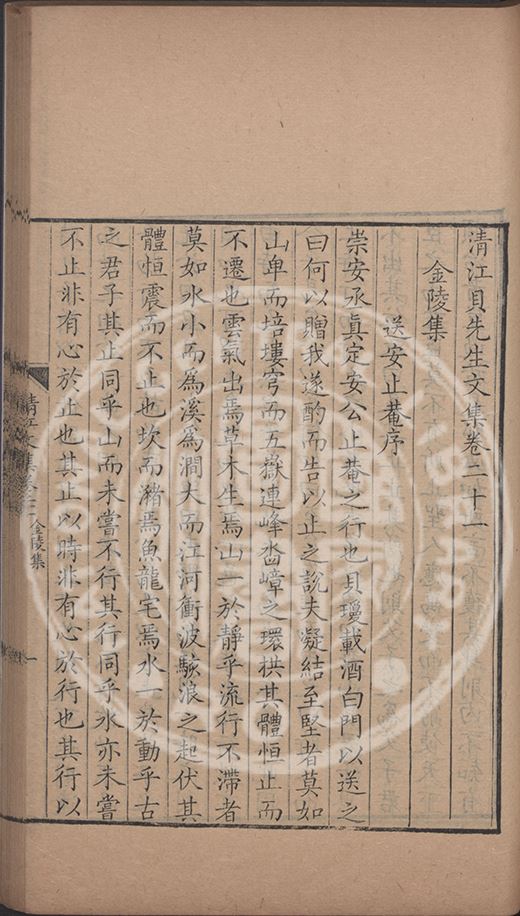 清江貝先生文集卷二十一
金陵集
送安止菴序
崇安丞眞定安公止菴之行也貝瓊載酒白門以送之
曰何以贈我遂酌而告以止之說夫凝結至堅者莫如
山卑而培塿穹而五嶽連峰沓嶂之環拱其體恒止而
不遷也雲氣出焉草木生焉山一於靜乎流行不滯者
莫如水小而爲溪爲澗大而江河衝波駭浪之起伏其
體恒震而不止也坎而瀦焉魚龍宅焉水一於動乎古
之君子其止同乎山而未嘗不行其行同乎水亦未嘗
不止非有心於止也其止以時非有心於行也其行以
清江文集卷
金陵集
一